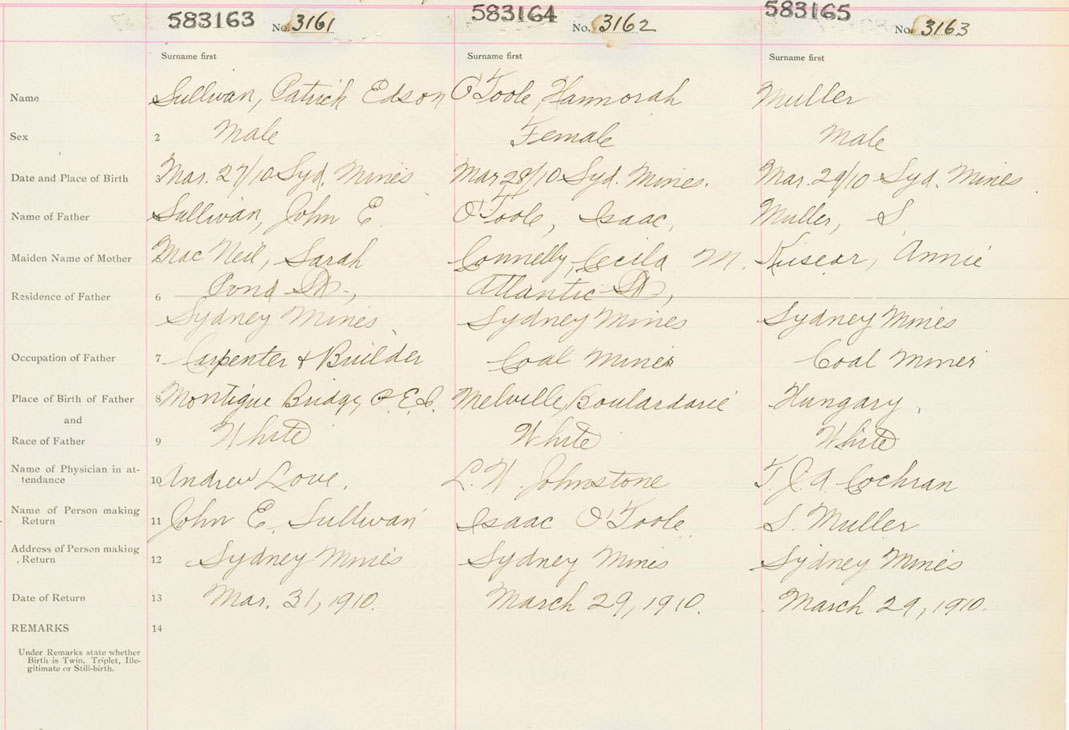 583163 No. 3161 583164 No. 3162 583165 No. 3163
Surname first Surname first Surname first
Name Sullivan, Patrick Edson O'Toole, Hannorah Muller
Sex 2 Male Female Male
Date and Place of Birth Mar. 27/10 Syd. Mines Mar 28/10 Syd. Mines. Mar. 29/10 Syd. Mines
Name of Father Sullivan, John E. O'Toole, Isaac, Muller, S.
Maiden Name of Mother Mac Neil, Sarah Connelly, Cecila M. Annie
Pond St., Atlantic St,
Residence of Father 6
Sydney Mines Sydney Mines Sydney Mines
Occupation of Father 7 Carpenter & Builder Coal Miner Coal Miner
Place of Birth of Father 8 Montigue Bridge, P.E.I. Melville, Boulardarie Hungary.
and
Race of Father 9 White White White
Name of Physician in at-
tendance 10 Andrew Love. L. W. Johnstone T. J. A. Cochran
Name of Person making
Return 11 John E. Sullivan Isaac O'Toole S. Muller
Address of Person making
Return 12 Sydney Mines Sydney Mines Sydney Mines
Date of Return 13 Mar. 31, 1910. March 29, 1910. March 29, 1910.
REMARKS 14
Under Remarks state whether
Birth is Twin, Triplet, Ille-
gitimate or Still-birth.